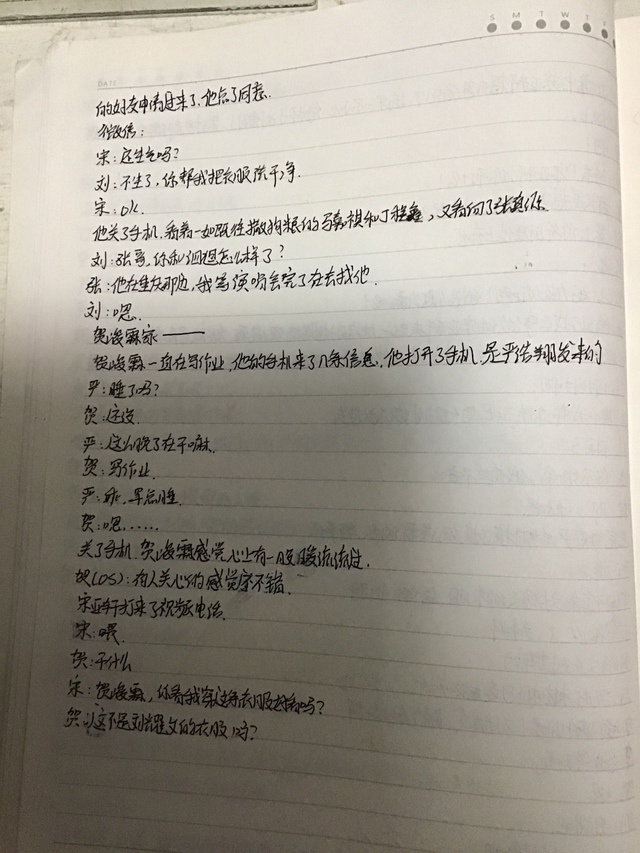 S M T W T F
DATE
的好友申请过来了,他点了同意.
微信:
宋:还生气吗?
刘:不生了,你帮我把衣服洗干净.
宋:OK.
他关了手机,看着一如既往撒狗粮的马嘉祺和丁程鑫,又看向了张真源
刘:张哥,你和泗旭怎么样了?
张:他在重庆那边,我等演唱会完了在去找他.
刘:嗯.
贺峻霖家——
贺峻霖一直在写作业,他的手机来了几条信息,他打开了手机,是严浩翔发来的
严:睡了吗?
贺:还没
严:这么晚了在干嘛.
贺:写作业.
严:乖,早点睡
贺:嗯......
关了手机,贺峻霖感觉心上有一股暖流流过.
贺(OS):有人关心的感觉字不错.
宋亚轩打来了视频电话
宋:喂
贺:干什么
宋:贺峻霖,你看我穿这件衣服好看吗?
贺:这不是刘耀文的衣服吗?